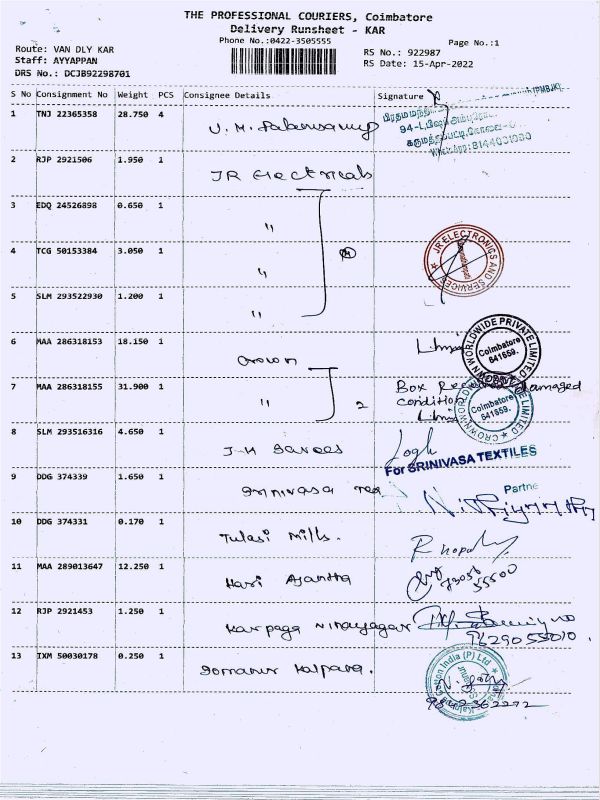 THE PROFESSIONAL COURIERS, Coimbatore
Delivery Runsheet - KAR
Phone No.:0422-3505555
Page No.:1
Route: VAN DLY KAR
RS No.: 922987
Staff: AYYAPPAN
RS Date: 15-Apr-2022
DRS No.: DCJB92298701
S No Consignment No Weight PCS Consignee Details Signature
(PMBJK)
1 TNJ 22365358 28.750 4
WhatsApp: 8144031030
2 RJP 2921506 1.950 1 JR Electricals
3 EDQ 24526898 0.650 1 "
JR ELECTRONICS AND SERVICES
4 TCG 50153384 3.050 1 "
5 SLM 293522930 1.200 1 "
6 MAA 286318153 18.150 1 Crown
CROWNWORLDWIDE PRIVATE LIMITED
Coimbatore
641659.
7 MAA 286318155 31.900 1 " 2 Box Received Damaged
condition
CROWNWORLDWIDE PRIVATE LIMITED
Coimbatore
641659.
8 SLM 293516316 4.650 1 J-H Sarees Logh
For SRINIVASA TEXTILES
9 DDG 374339 1.650 1 Srinivasa Tex
Partne
10 DDG 374331 0.170 1 Tulasi Mills.
11 MAA 289013647 12.250 1 Hari Ajantha
12 RJP 2921453 1.250 1 Karpaga Vinayagar
9629055010.
13 IXM 50030178 0.250 1 Somanur Kalpana.
Cotton India (P) Ltd
9842362272